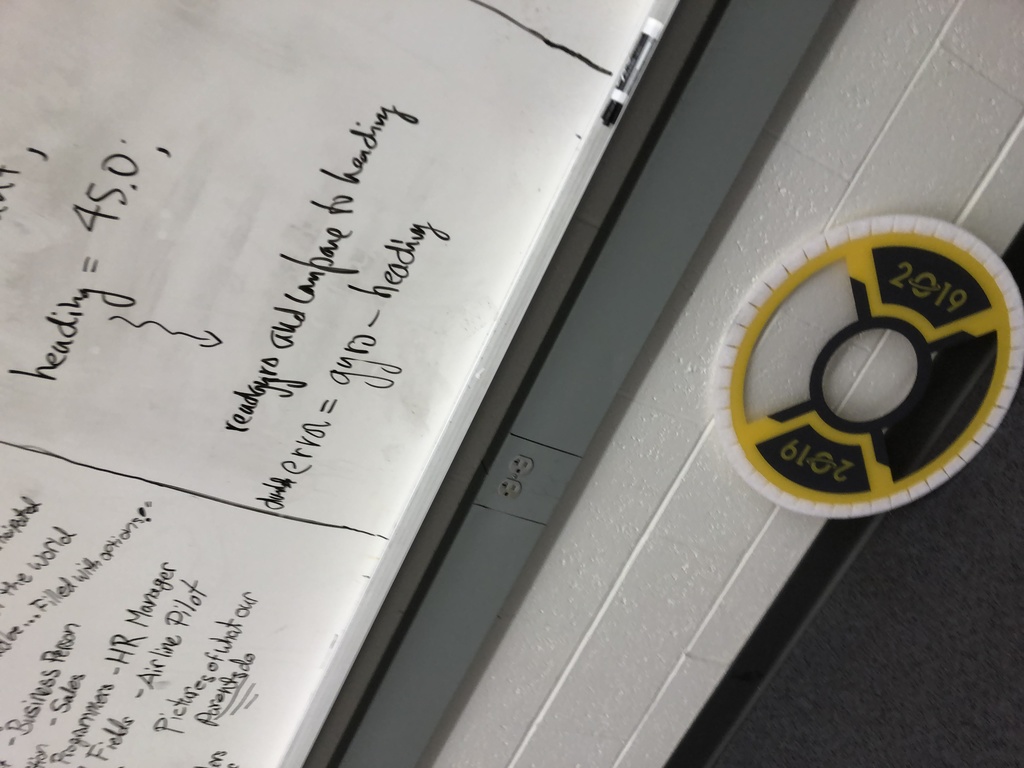 the world
Filled with actions!"
- Business Person
- Sales
Programmers - HR Manager
Fields - Airline Pilot
Pictures of what our
Parents do
heading = 45.0;
readgyro and compare to heading
double error = gyro - heading
2019
2019